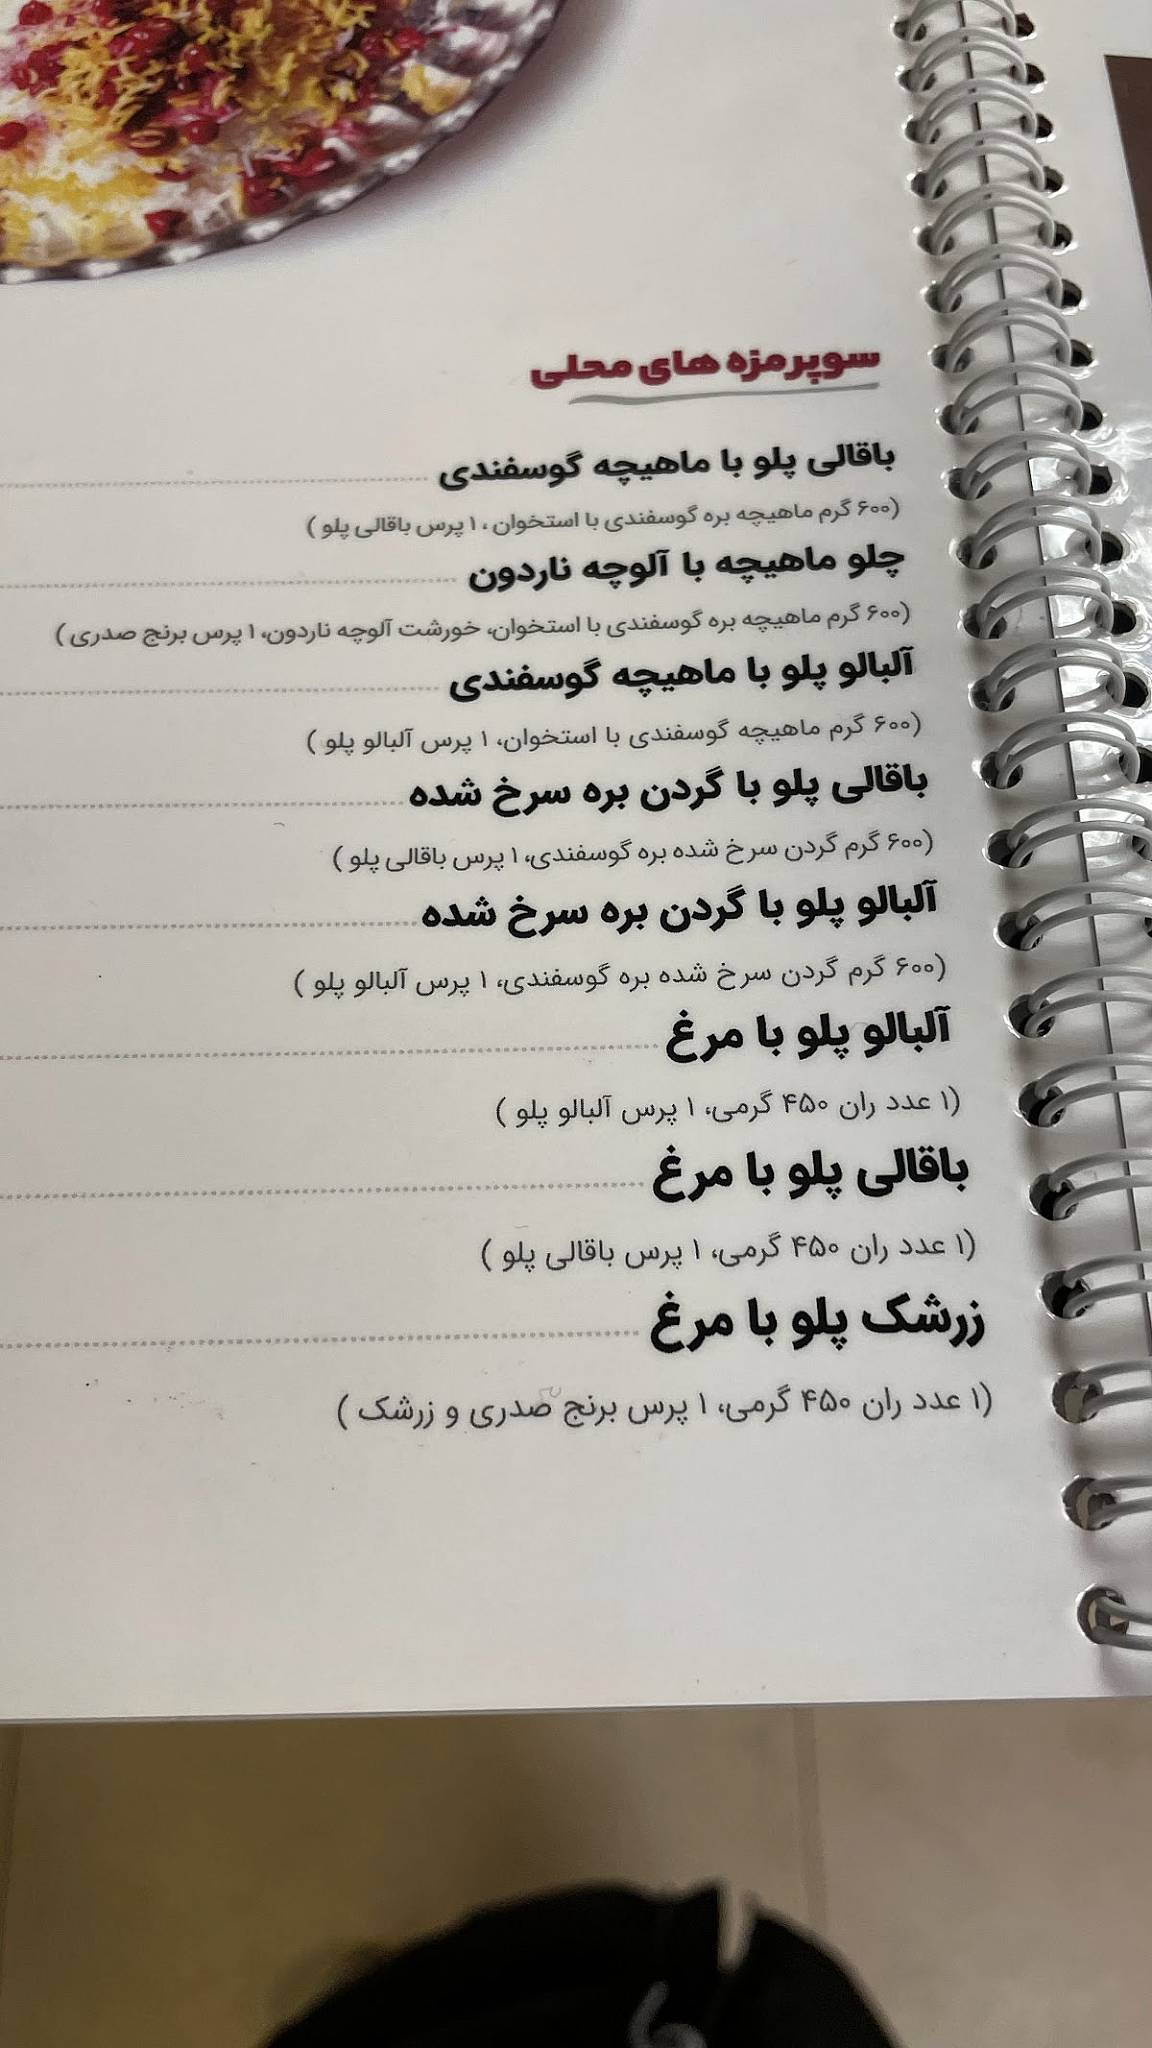 سوپرمزه های محلی
باقالی پلو با ماهیچه گوسفندی
(۶۰۰ گرم ماهیچه بره گوسفندی با استخوان ، ۱ پرس باقالی پلو )
چلو ماهیچه با آلوچه ناردون
(۶۰۰ گرم ماهیچه بره گوسفندی با استخوان، خورشت آلوچه ناردون، ۱ پرس برنج صدری )
آلبالو پلو با ماهیچه گوسفندی
(۶۰۰ گرم ماهیچه گوسفندی با استخوان، ۱ پرس آلبالو پلو )
باقالی پلو با گردن بره سرخ شده
(۶۰۰ گرم گردن سرخ شده بره گوسفندی، ۱ پرس باقالی پلو )
آلبالو پلو با گردن بره سرخ شده
(۶۰۰ گرم گردن سرخ شده بره گوسفندی، ۱ پرس آلبالو پلو )
آلبالو پلو با مرغ
(۱ عدد ران ۴۵۰ گرمی، ۱ پرس آلبالو پلو )
باقالی پلو با مرغ
(۱ عدد ران ۴۵۰ گرمی، ۱ پرس باقالی پلو )
زرشک پلو با مرغ
(۱ عدد ران ۴۵۰ گرمی، ۱ پرس برنج صدری و زرشک )